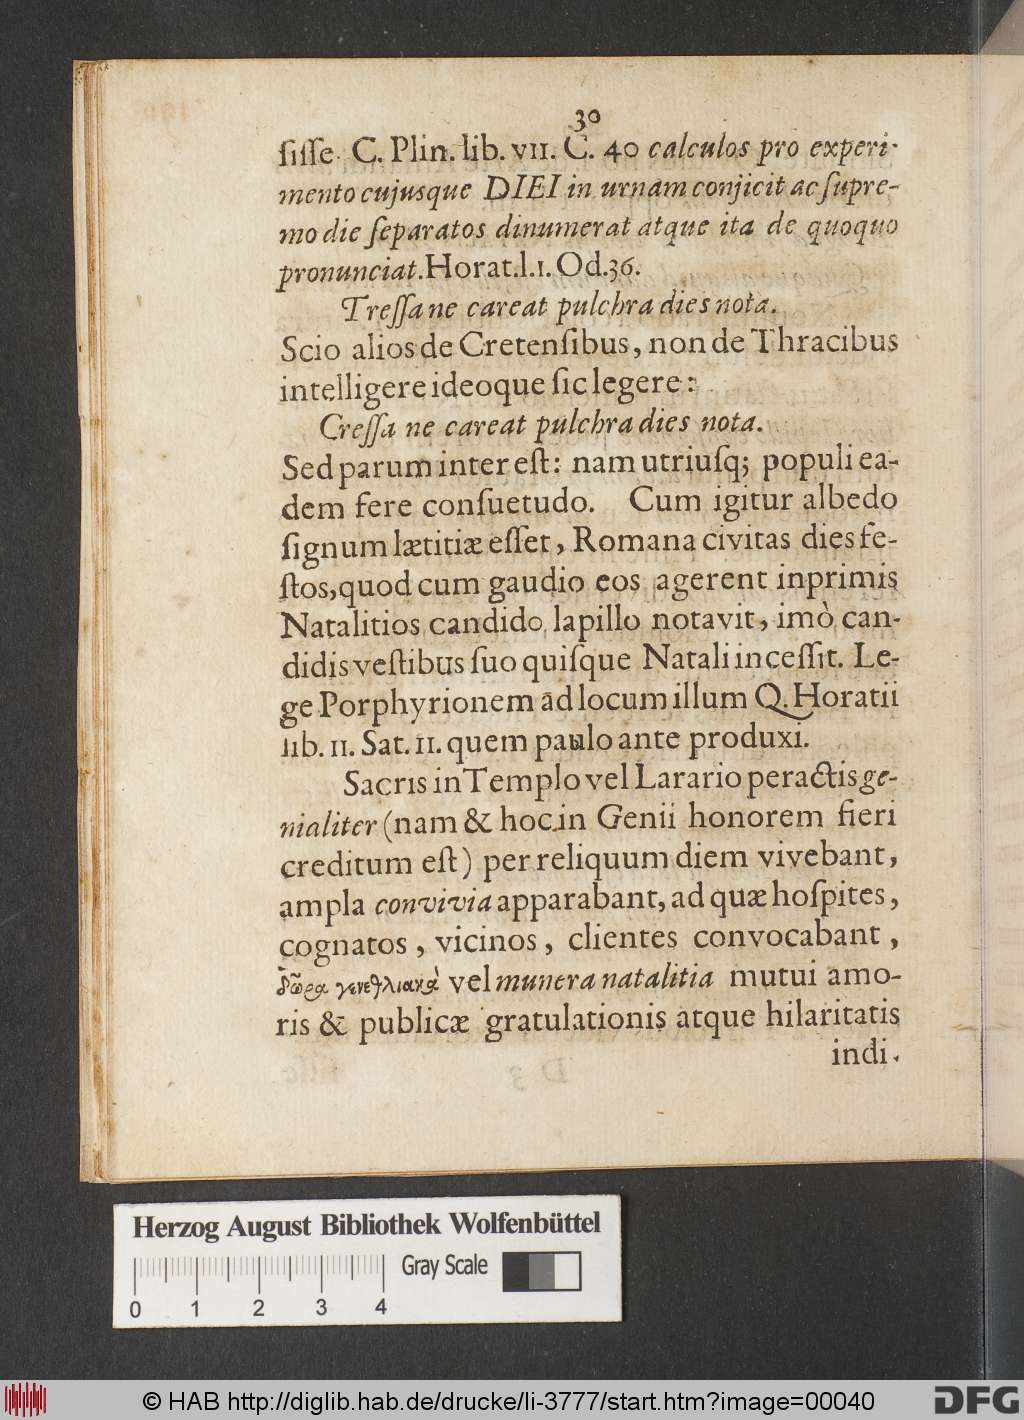 30
ſiſſe C. Plin. lib. VII. C. 40 calculos pro experi-
mento cujusque DIEI in urnam conjicit ac ſupre-
mo die ſeparatos dinumerat atque ita de quoquo
pronunciat. Horat. l. 1. Od. 36.
Treſſa ne careat pulchra dies nota.
Scio alios de Cretenſibus, non de Thracibus
intelligere ideoque ſic legere:
Creſſa ne careat pulchra dies nota.
Sed parum intereſt: nam utriuſq; populi ea-
dem fere conſuetudo. Cum igitur albedo
ſignum lætitiæ eſſet, Romana civitas dies fe-
ſtos, quod cum gaudio eos agerent inprimis
Natalitios candido lapillo notavit, imò can-
didis veſtibus ſuo quiſque Natali inceſſit. Le-
ge Porphyrionem ad locum illum Q. Horatii
lib. II. Sat. II. quem paulo ante produxi.
Sacris in Templo vel Larario peractis ge-
nialiter (nam & hoc in Genii honorem fieri
creditum eſt) per reliquum diem vivebant,
ampla convivia apparabant, ad quæ hoſpites,
cognatos, vicinos, clientes convocabant,
δῶρα γενεθλιακὰ vel munera natalitia mutui amo-
ris & publicæ gratulationis atque hilaritatis
indi-
Herzog August Bibliothek Wolfenbüttel
Gray Scale
0 1 2 3 4
© HAB http://diglib.hab.de/drucke/li-3777/start.htm?image=00040
DFG